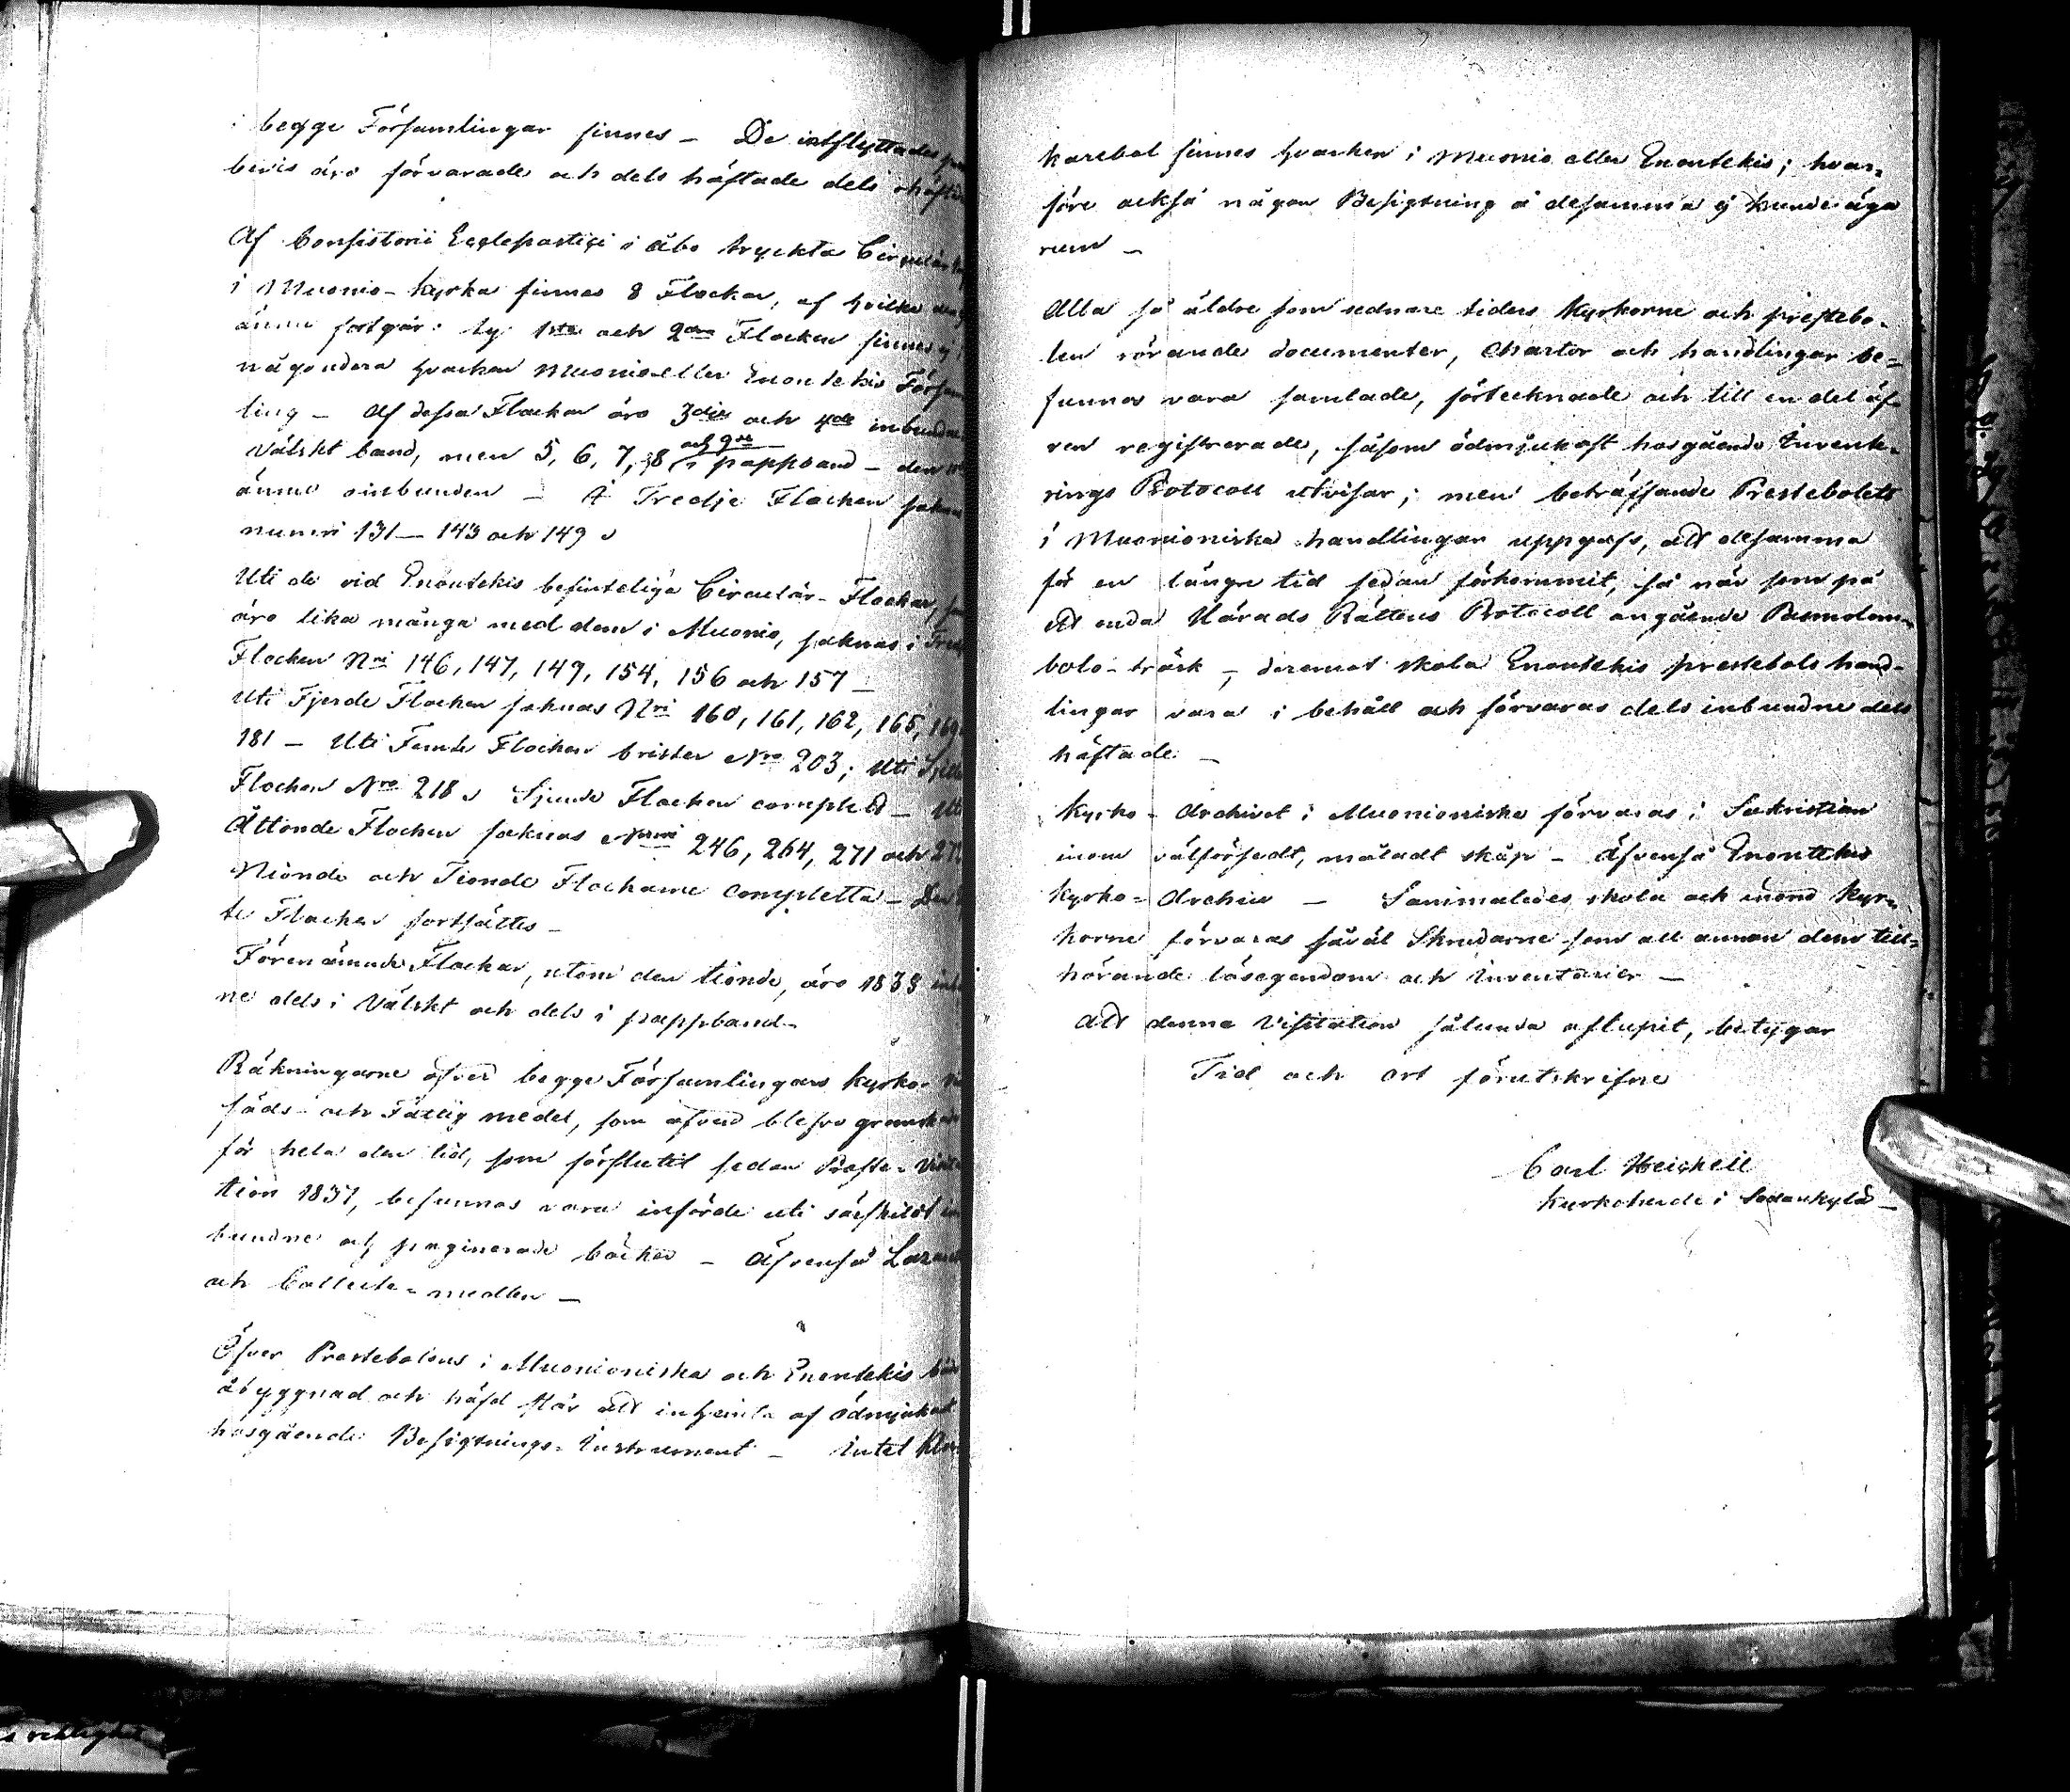 i begge Församlingar finnes – De inflyttades
bevis äro förvarade och dels häftade dels ohäftade
Af Consistorii Ecclesiastici i åbo tryckta Circulär
i Muonio-kyrka finnas 8 Flockar, af hvilka den
ännu fortgår: ty 1sta och 2dra Flocken finnes ej
någondera hvarken Muonio eller Enontekis Försam
ling – Af dessa Flockar äro 3dje och 4de inbundne
välskt band, men 5, 6, 7, 8 och 9de i pappband – den
ännu oinbunden – I Tredje Flocken saknas
numri 131 – 143 och 149
Uti de vid Enontekis befinteliga Circulär-Flockar,
äro lika många med dem i Muonio, saknas i Tredje
Flocken Nri 146, 147, 149, 154, 156 och 157 –
Uti Fjerde Flocken saknas Nri 160, 161, 162, 165, 169
181 – Uti Femte Flocken brister Nro 203; Uti Sjette
Flocken Nro 218 Sjunde Flocken complett – Uti
Åttonde Flocken saknas Numri 246, 264, 271 och
Nionde och Tionde Flockarne completta – Den
te Flocken fortsättes –
Förenämnde Flockar, utom den tionde, äro 1838
ne dels i Välskt och dels i pappband –
Räkningarne öfver begge Församlingars kyrko-
säds- och Fattig medel, som äfven blefvo granskade
för hela den tid, som förflutit sedan Proste-Visita
tion 1837, befunnos vara införde uti särskildt in
bundne och paginerade böcker – Äfvenså
och Collecte-medlen –
Öfver Prestebolens i Muonioniska och Enontekis
åbyggnad och häfd står att inhemta af ödmjukast
hosgående Besigtnings-Instrument – Intet
karebol finnes hvarken i Muonio eller Enontekis; hvar-
före också någon Besigtning å desamma ej kunde äga
rum –
Alla så äldre som sednare tiders kyrkorne och prestebo-
len rörande documenter, Chartor och handlingar be-
funnos vara samlade, förtecknade och till en del äf
ven registrerade, såsom ödmjukast hosgående Invente-
rings Protocoll utvisar; men beträffande Prestebolets
i Muonioniska handlingar uppgafs, att desamma
för en längre tid sedan förkommit, så när som på
ett enda Härads Rättens Protocoll angående
bolo-träsk –, deremot skola Enontekis prestebols hand-
lingar vara i behåll och förvaras dels inbundne dels
häftade –
Kyrko-Archivet i Muonioniska förvaras i Sakristian
inom välförsedt, måladt skåp – Äfvenså Enontekis
kyrko-Archiv – Sammaledes skola och inom kyr-
korne förvaras såväl Skrudarne som all annan dem till-
hörande lösegendom och inventarier –
Att denna Visitation sålunda aflupit, betygar
Tid och ort förutskrifne
Carl Heickell
Kyrkoherde i Sodankylä –